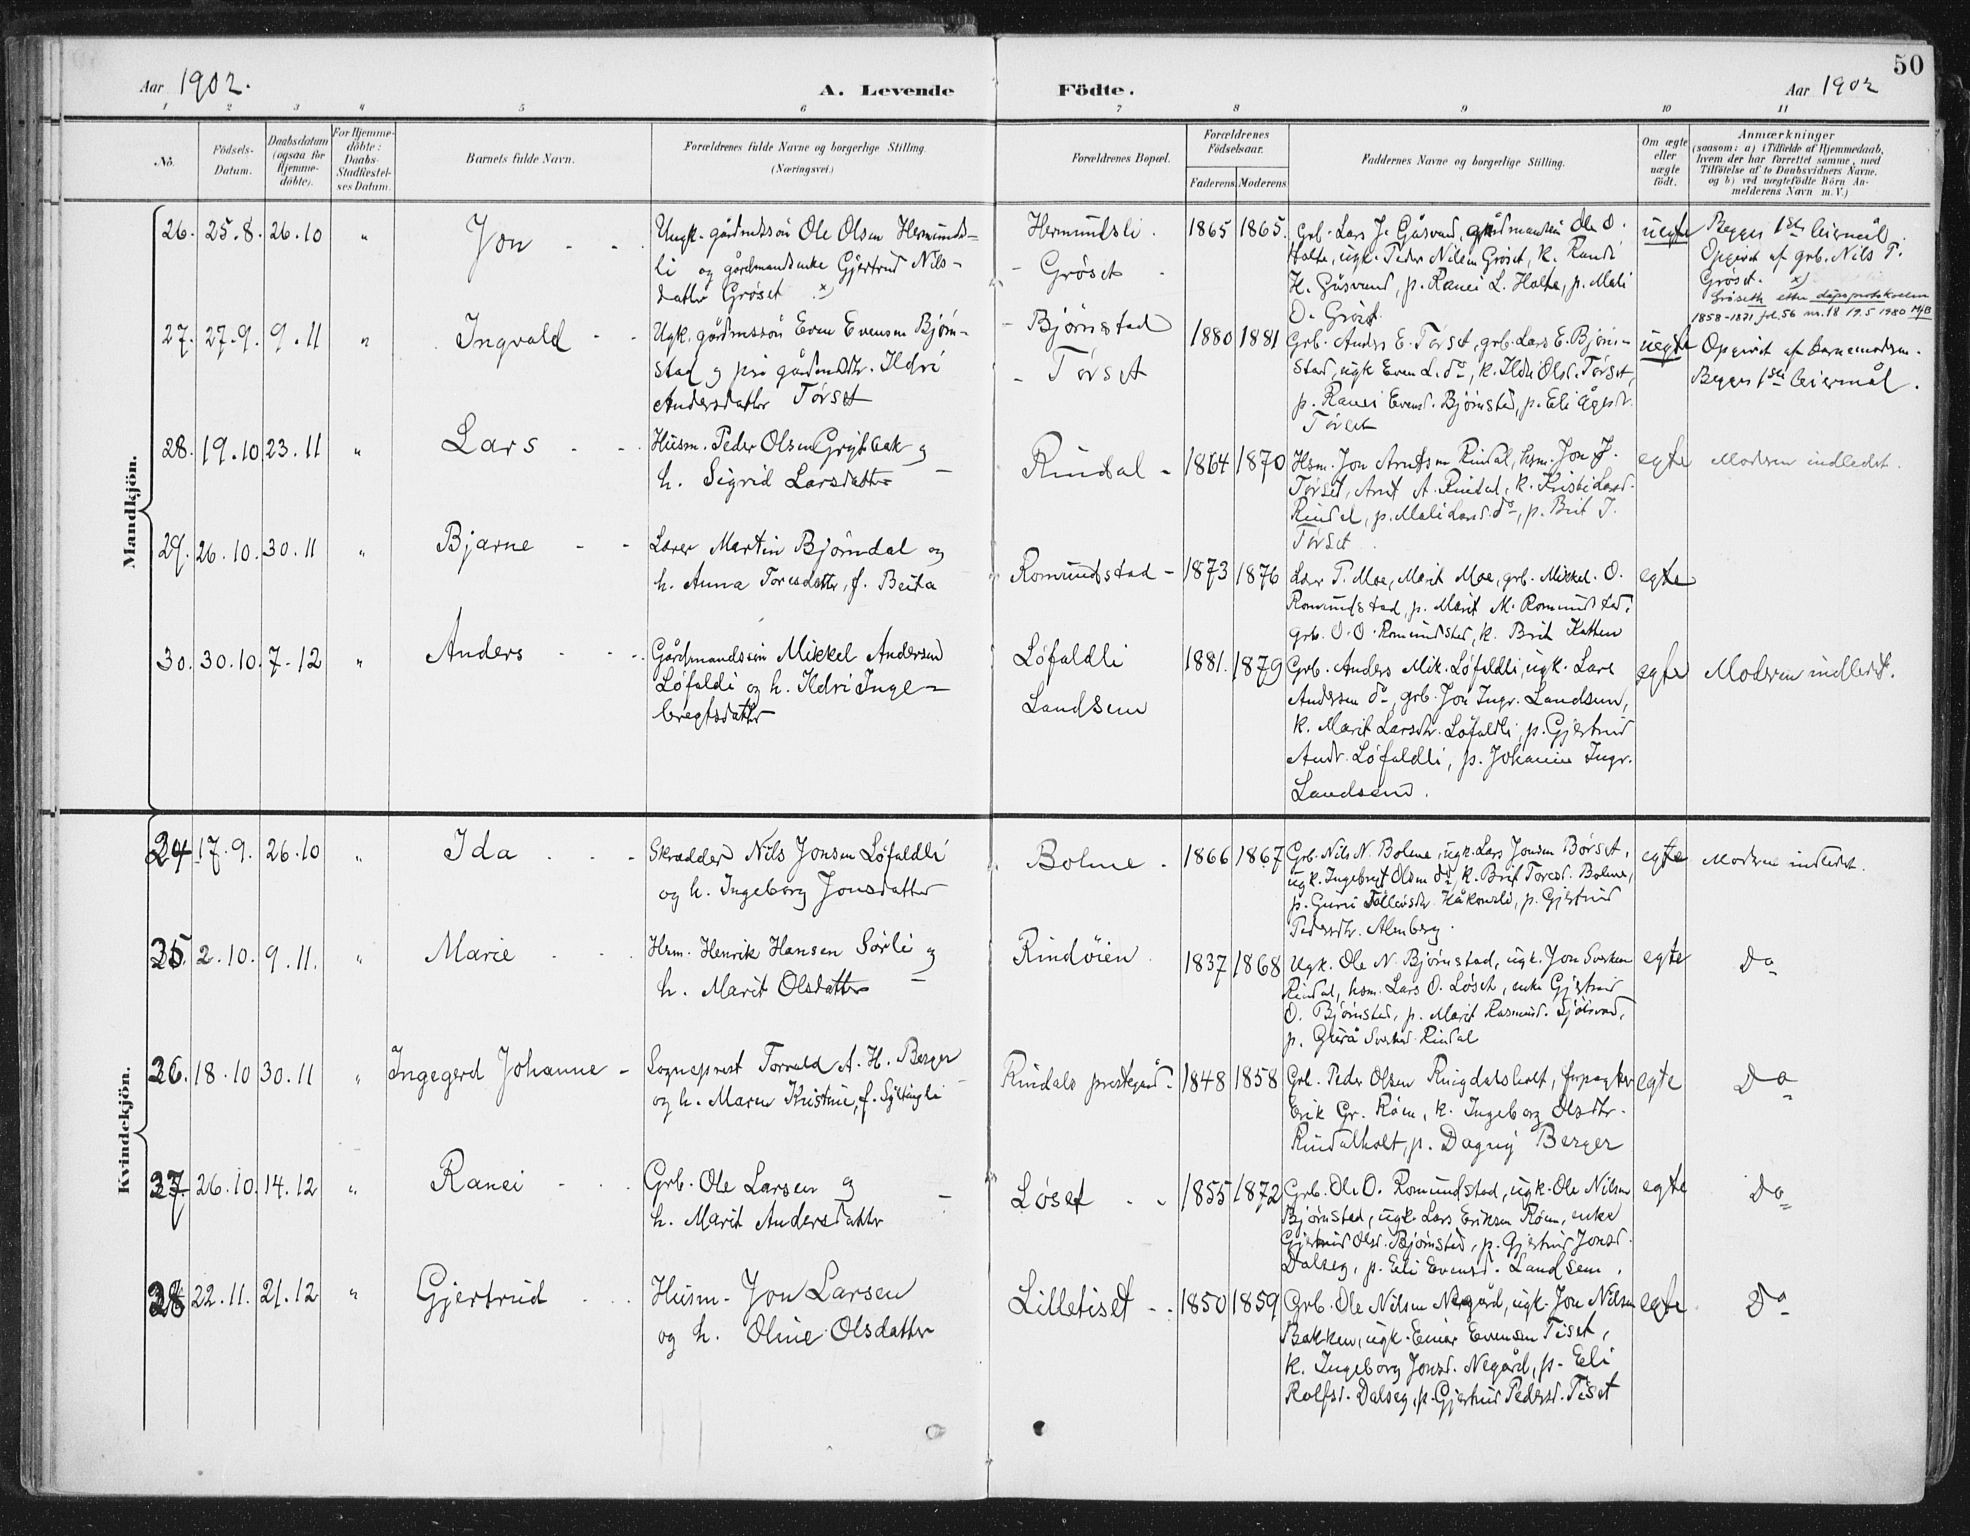 50
Aar 1902.
A. Levende Födte.
Aar 1902
1 2 3 4 5 6 7 8 9 10 11
No.
Födsels-Datum.
Daabsdatum (ogsaa for Hjemme-döbte).
For Hjemme-döbte: Daabs-Stadfæstel-ses Datum.
Barnets fulde Navn.
Forældrenes fulde Navne og borgerlige Stilling.
(Næringsvei.)
Forældrenes Bopæl.
Forældrenes Födselsaar.
Faderens. Moderens.
Faddernes Navne og borgerlige Stilling.
Om ægte eller uægte födt.
Anmærkninger
(saasom: a) i Tilfælde af Hjemmedaab, hvem der har forrettet samme, med Tilföielse af to Daabsvidners Navne. og b) ved uægtefödte Börn An-melderens Navn m. V.)
Mandkjön.
26. 25.8. 26.10 " Jon
Ungk. gårdmssön Ole Olsen Hermunds-
li og gårdmandsenke Gjertrud Nils-
datter Grøset x)
Hermundsli.
Grøset
1865 1865.
Grb. Lars J. Gåsvand, gårdmandsøn Ole O.
Holte, ugk. Peder Nilsen Grøset, k. Randi
H. Gåsvand, p. Ranei L. Holte, p. Mali
O. Grøset.
uegte
Begges 1ste leiermål.
Opgivet af grb. Nils P.
Grøset. x)
Grøseth etter dåpsprotokollen
1858-1871 fol. 56 nr. 18 19.5 1980 MjB
27. 27.9. 9.11 " Ingvald
Ugk. gårdmssön Even Evensen Bjørn-
stad og pri gårdmdtr. Ildri
Andersdatter Tørset
Bjørnstad
Tørset
1880 1881
Grb. Anders E. Tørset, grb. Lars E. Bjørn-
stad, ugk Even L. do, k. Ildri Olsd. Tørset,
p. Ranei Evensd. Bjørnstad, p. Eli Ågesdr.
Tørset
uegte
Opgivet af barnemoderen.
Begges 1ste leiermål.
28. 19.10. 23.11 " Lars
Husm. Peder Olsen Grytbak og
h. Sigrid Larsdatter
Rindal
1864 1870
Hsm. Jon Arntsen Rindal, hsm. Jon J.
Tørset, Arnt A. Rindal, k. Kristi Larsd.
Rindal, p. Mali Larsd. do, p. Brit J.
Tørset.
egte
Moderen indledet.
29. 26.10. 30.11 " Bjarne
Lærer Martin Bjørndal og
h. Anna Toresdatter, f. Beita
Romundstad
1873 1876
Lær T. Moe, Marit Moe, grb. Mikkel O.
Romundstad, p. Marit M. Romundstad,
grb. O. O. Romundstad, k. Brit Katten
egte
30. 30.10. 7.12 " Anders
Gårdmandssøn Mikkel Andersen
Løfaldli og h. Ildri Inge-
bregtsdatter
Løfaldli
Landsem
1881. 1879
Grb. Anders Mik. Løfaldli, ugk. Lars
Andersen do, grb. Jon Ingr. Landsem,
k. Marit Larsdtr. Løfaldli, p. Gjertrud
Andr. Løfaldli, p. Johanne Ingr.
Landsem.
egte
Moderen indledet.
Kvindekjön.
24 17.9. 26.10 " Ida
Skrædder Nils Jonsen Løfaldli
og h. Ingeborg Jonsdatter
Bolme
1866 1867
Grb. Nils N. Bolme, ugk. Lars Jonsen Børset,
ugk. Ingebregt Olsen do, k. Brit Toresd. Bolme,
p. Guru Tollevsdr. Håkonsli, p. Gjertrud
Pedersdtr. Almberg.
egte
Moderen indledet.
25. 2.10. 9.11. " Marie
Hsm. Henrik Hansen Sørli og
h. Marit Olsdatter
Rindøien.
1837 1868
Ugk. Ole N. Bjørnstad, ugk. Jon Sverken
Rindal, hsm. Lars O. Løset, enke Gjertrud
O. Bjørnstad, p. Marit Rasmusd. Sjølsvold,
p. Gurå Sverksd. Rindal
egte
Do
26. 18.10 30.11 " Ingegerd Johanne
Sogneprest Torvald A. H. Berger
og h. Maren Kristine, f.
Rindals prestegård.
1848 1858
Grb. Peder Olsen Ringdalsholt, forpagter
Erik Gr. Røen, k. Ingeborg Olsdtr.
Rindalholt, p. Dagny Berger
egte
Do
27 26.10. 14.12 " Ranei
Grb. Ole Larsen og
h. Marit Andersdatter
Løset
1855 1872
Grb. Ole O. Romundstad, ugk. Ole Nilsen
Bjørnstad, ugk. Lars Eriksen Røen, enke
Gjertrud Olsd. Bjørnstad, p. Gjertrud Jonsd.
Dalseg, p. Eli Evensd. Landsem.
egte
Do
28 22.11. 21.12 " Gjertrud
Husm. Jon Larsen
og h. Oline Olsdatter
Lilletiset
1850 1859
Grb. Ole Nilsen Negård, ugk. Jon Nilsen
Bakken, ugk. Einar Evensen Tiset,
k. Ingeborg Jonsd. Negård, p. Eli
Rolfsd. Dalseg, p. Gjertrud Pedersd. Tiset
egte
Do